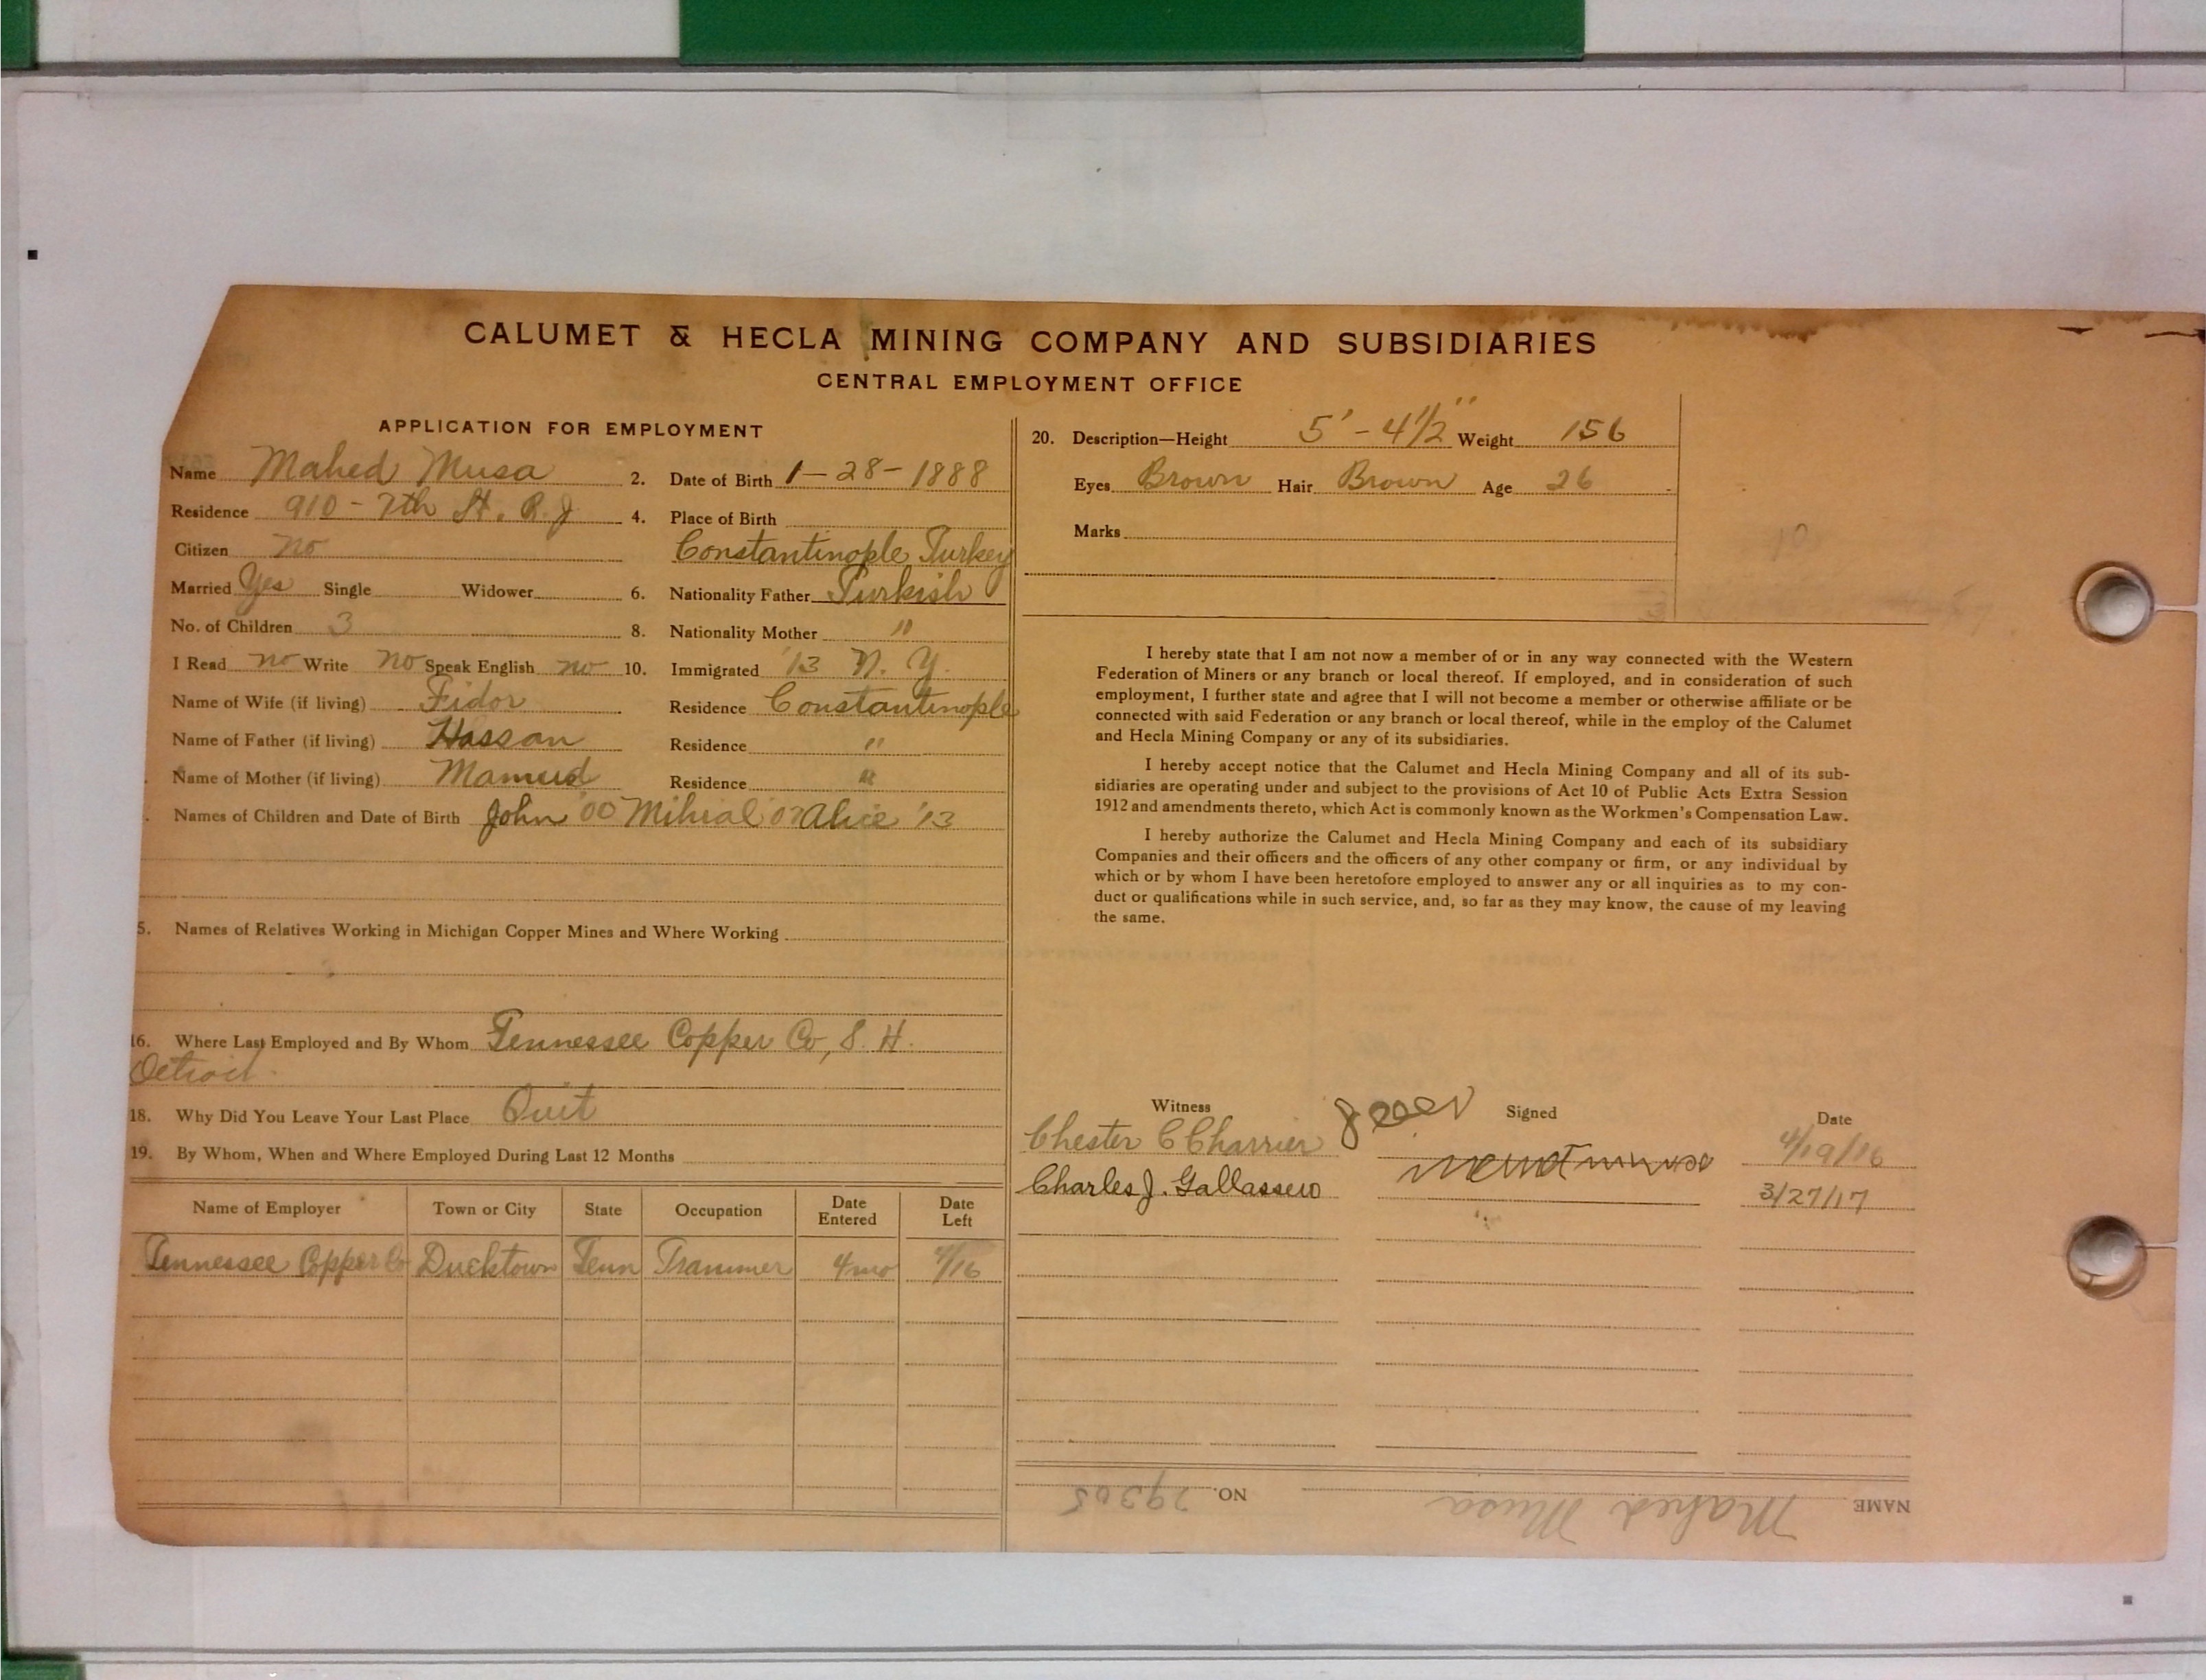 CALUMET & HECLA MINING COMPANY AND SUBSIDIARIES
CENTRAL EMPLOYMENT OFFICE
APPLICATION FOR EMPLOYMENT
Name Mahed Musa 2. Date of Birth 1-28-1888
Residence 910 - 7th St. R.J 4. Place of Birth
Citizen no Constantinople Turkey
Married Yes Single Widower 6. Nationality Father Turkish
No. of Children 3 8. Nationality Mother "
I Read no Write no Speak English no 10. Immigrated '13 N. Y.
Name of Wife (if living) Fidor Residence Constantinople
Name of Father (if living) Hassan Residence "
Name of Mother (if living) Mamud Residence "
Names of Children and Date of Birth John '00 Mihial '07 Alice '13
5. Names of Relatives Working in Michigan Copper Mines and Where Working
16. Where Last Employed and By Whom Tennessee Copper Co, S. H.
Detroit.
18. Why Did You Leave Your Last Place Quit
19. By Whom, When and Where Employed During Last 12 Months
Name of Employer Town or City State Occupation Date Entered Date Left
Tennessee Copper Co Ducktown Tenn Trammer 4 mo 4/16
20. Description—Height 5' - 4 1/2" Weight 156
Eyes Brown Hair Brown Age 26
Marks
I hereby state that I am not now a member of or in any way connected with the Western
Federation of Miners or any branch or local thereof. If employed, and in consideration of such
employment, I further state and agree that I will not become a member or otherwise affiliate or be
connected with said Federation or any branch or local thereof, while in the employ of the Calumet
and Hecla Mining Company or any of its subsidiaries.
I hereby accept notice that the Calumet and Hecla Mining Company and all of its sub-
sidiaries are operating under and subject to the provisions of Act 10 of Public Acts Extra Session
1912 and amendments thereto, which Act is commonly known as the Workmen's Compensation Law.
I hereby authorize the Calumet and Hecla Mining Company and each of its subsidiary
Companies and their officers and the officers of any other company or firm, or any individual by
which or by whom I have been heretofore employed to answer any or all inquiries as to my con-
duct or qualifications while in such service, and, so far as they may know, the cause of my leaving
the same.
Witness Signed Date
Chester C Charrier 4/19/16
Charles J. Gallassero 3/27/17
NAME Mahed Musa NO. 29305